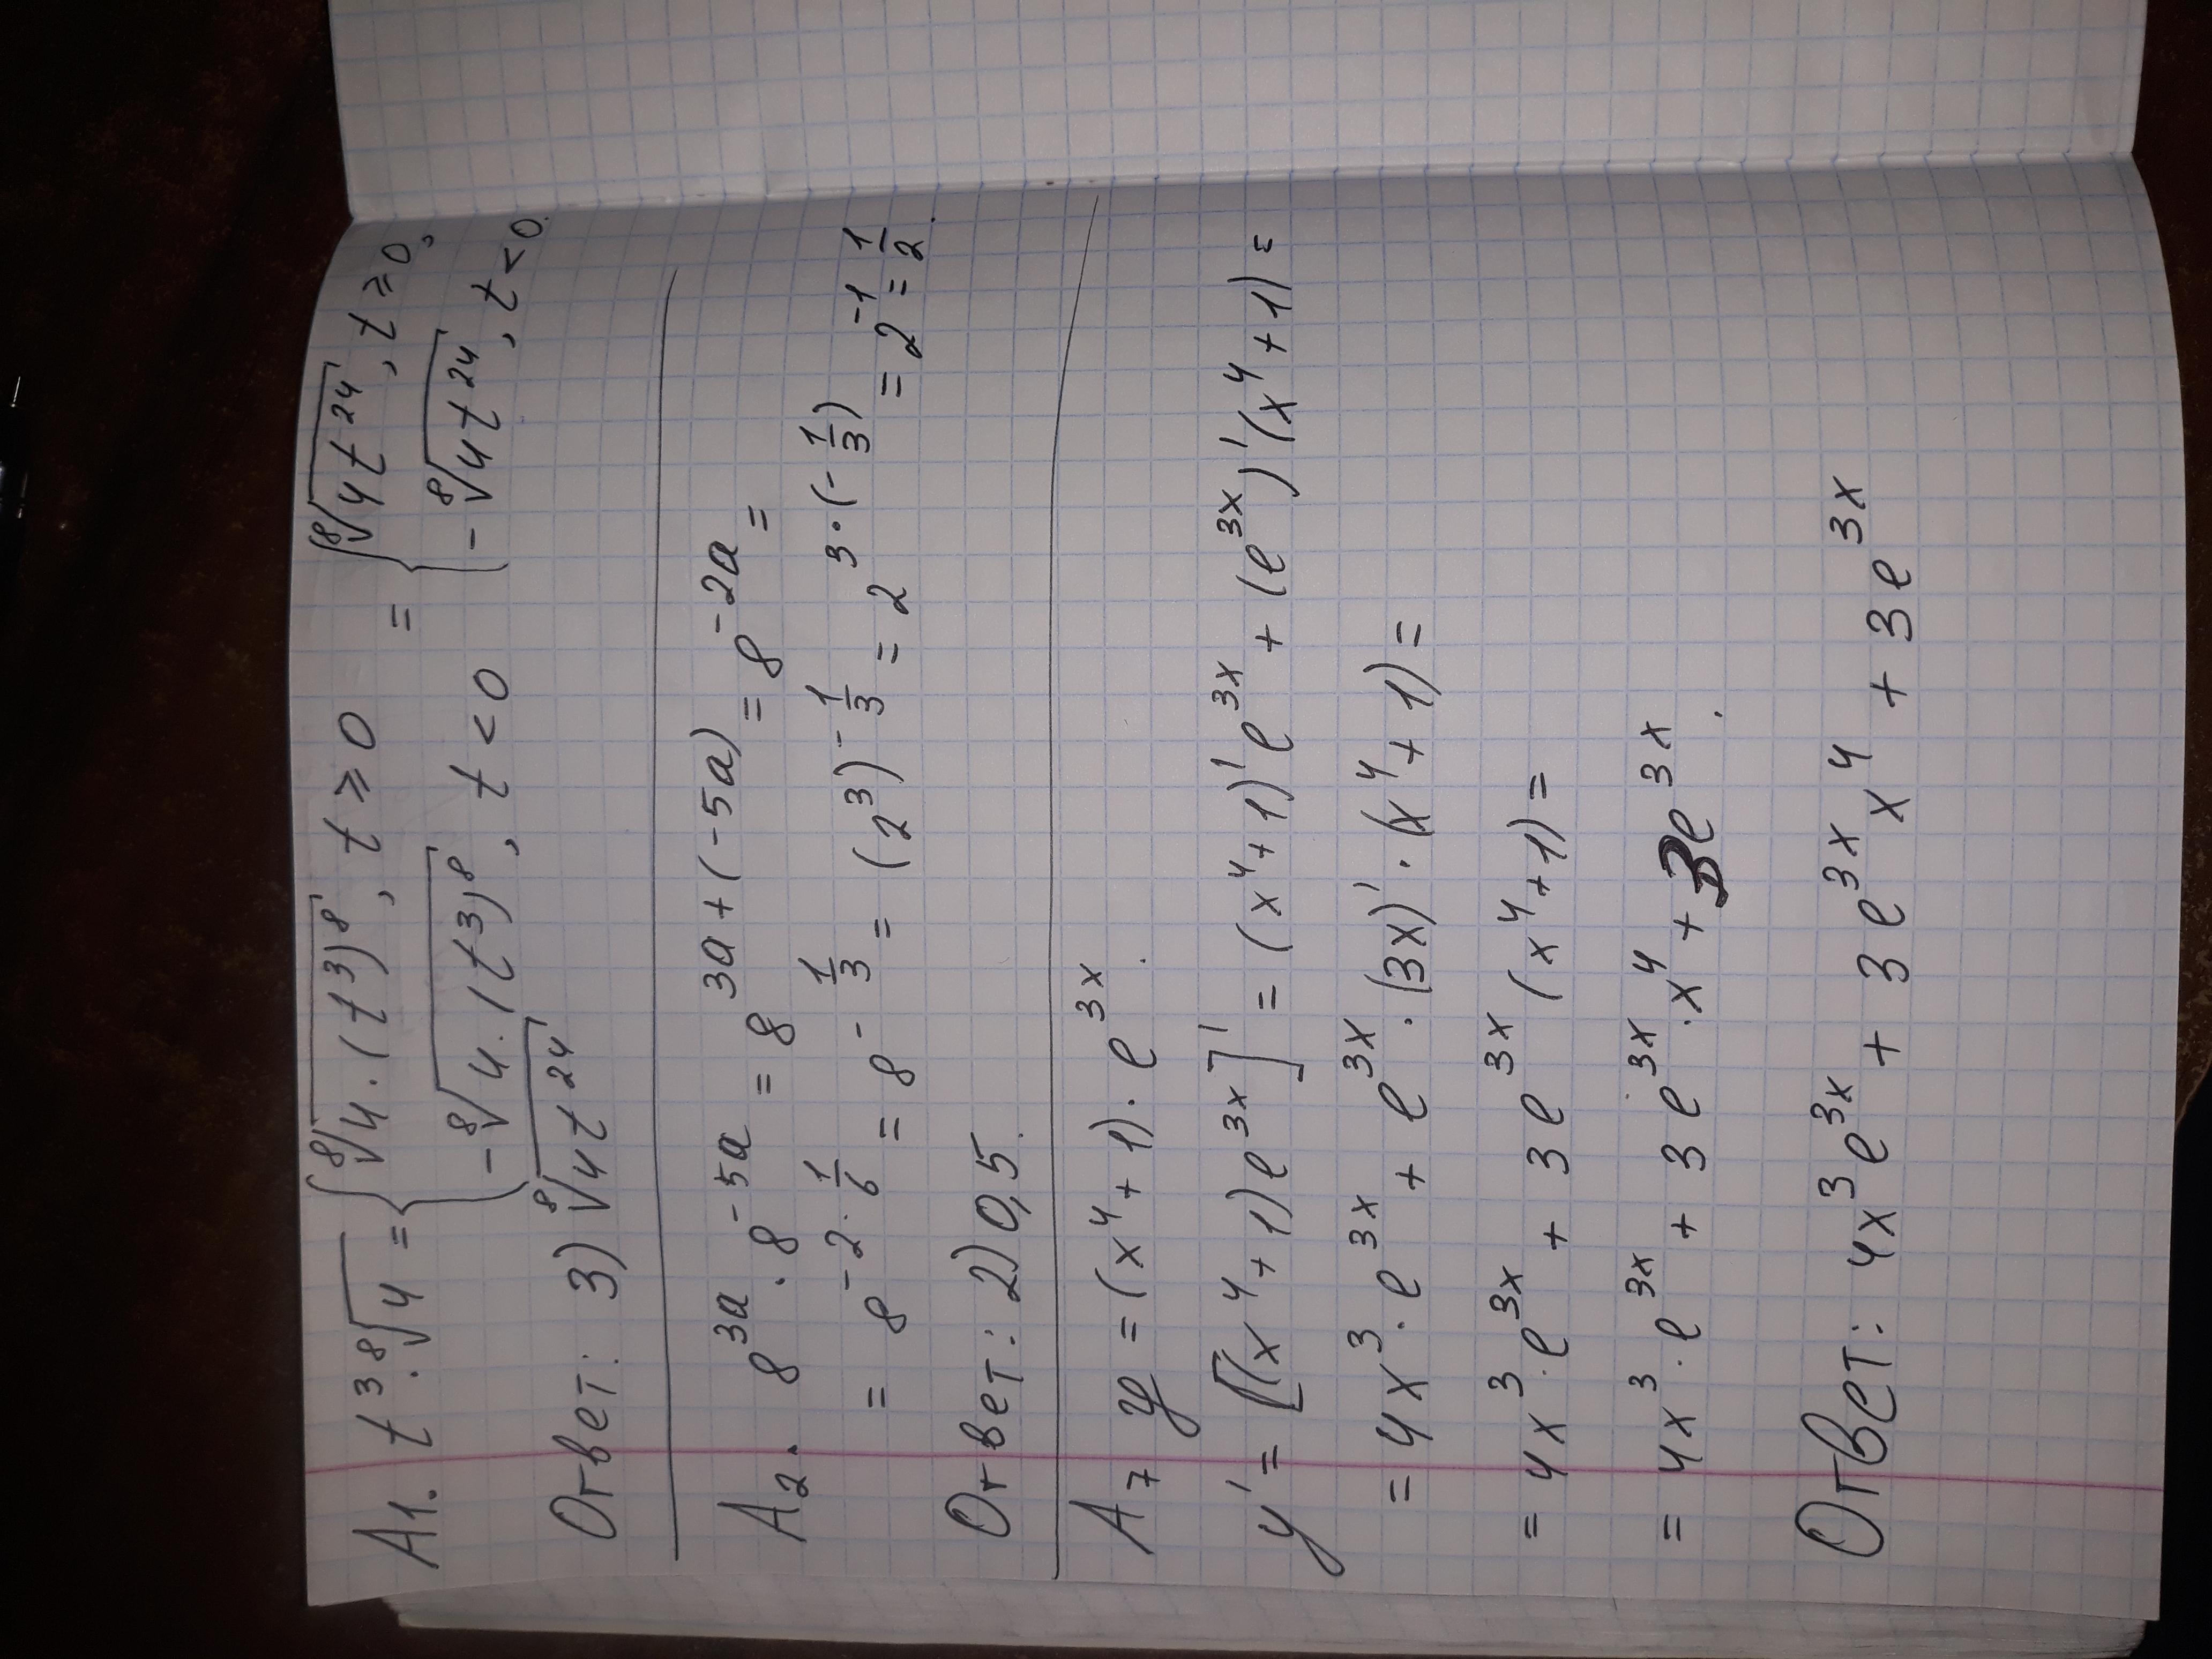 A1. t³·⁸√4 = { ⁸√4·(t³)⁸, t ≥ 0 = { ⁸√4t²⁴, t ≥ 0,
-⁸√4·(t³)⁸, t < 0 -⁸√4t²⁴, t < 0.
Ответ: 3) ⁸√4t²⁴
A2. 8^(3a) · 8^(-5a) = 8^(3a+(-5a)) = 8^(-2a) =
= 8^(-2·1/6) = 8^(-1/3) = (2³)^(-1/3) = 2^(3·(-1/3)) = 2^(-1) = 1/2.
Ответ: 2) 0,5.
A7 y = (x⁴+1)·e^(3x).
y' = [(x⁴+1)e^(3x)]' = (x⁴+1)'e^(3x) + (e^(3x))'(x⁴+1) =
= 4x³·e^(3x) + e^(3x)·(3x)'·(x⁴+1) =
= 4x³·e^(3x) + 3e^(3x)(x⁴+1) =
= 4x³·e^(3x) + 3e^(3x)·x⁴ + 3e^(3x).
Ответ: 4x³e^(3x) + 3e^(3x)x⁴ + 3e^(3x)